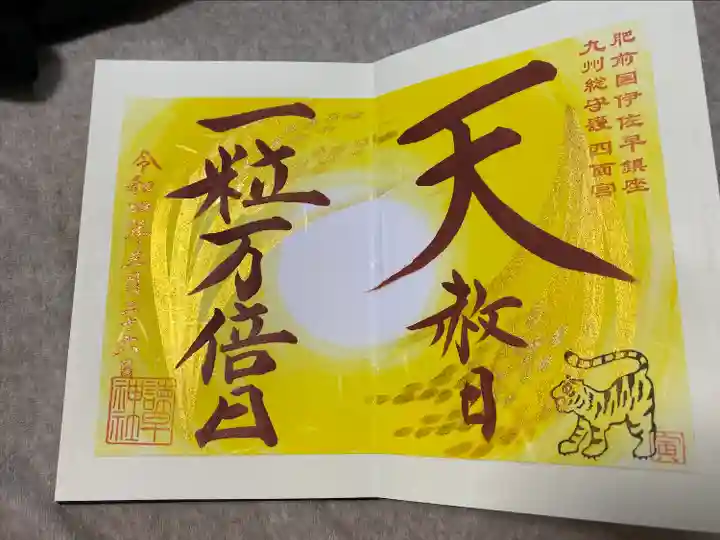 肥前国伊佐早鎮座
九州総守護 四面宮
天
赦日
一粒万倍日
令和四年三月二十六日
諫早
神社
寅